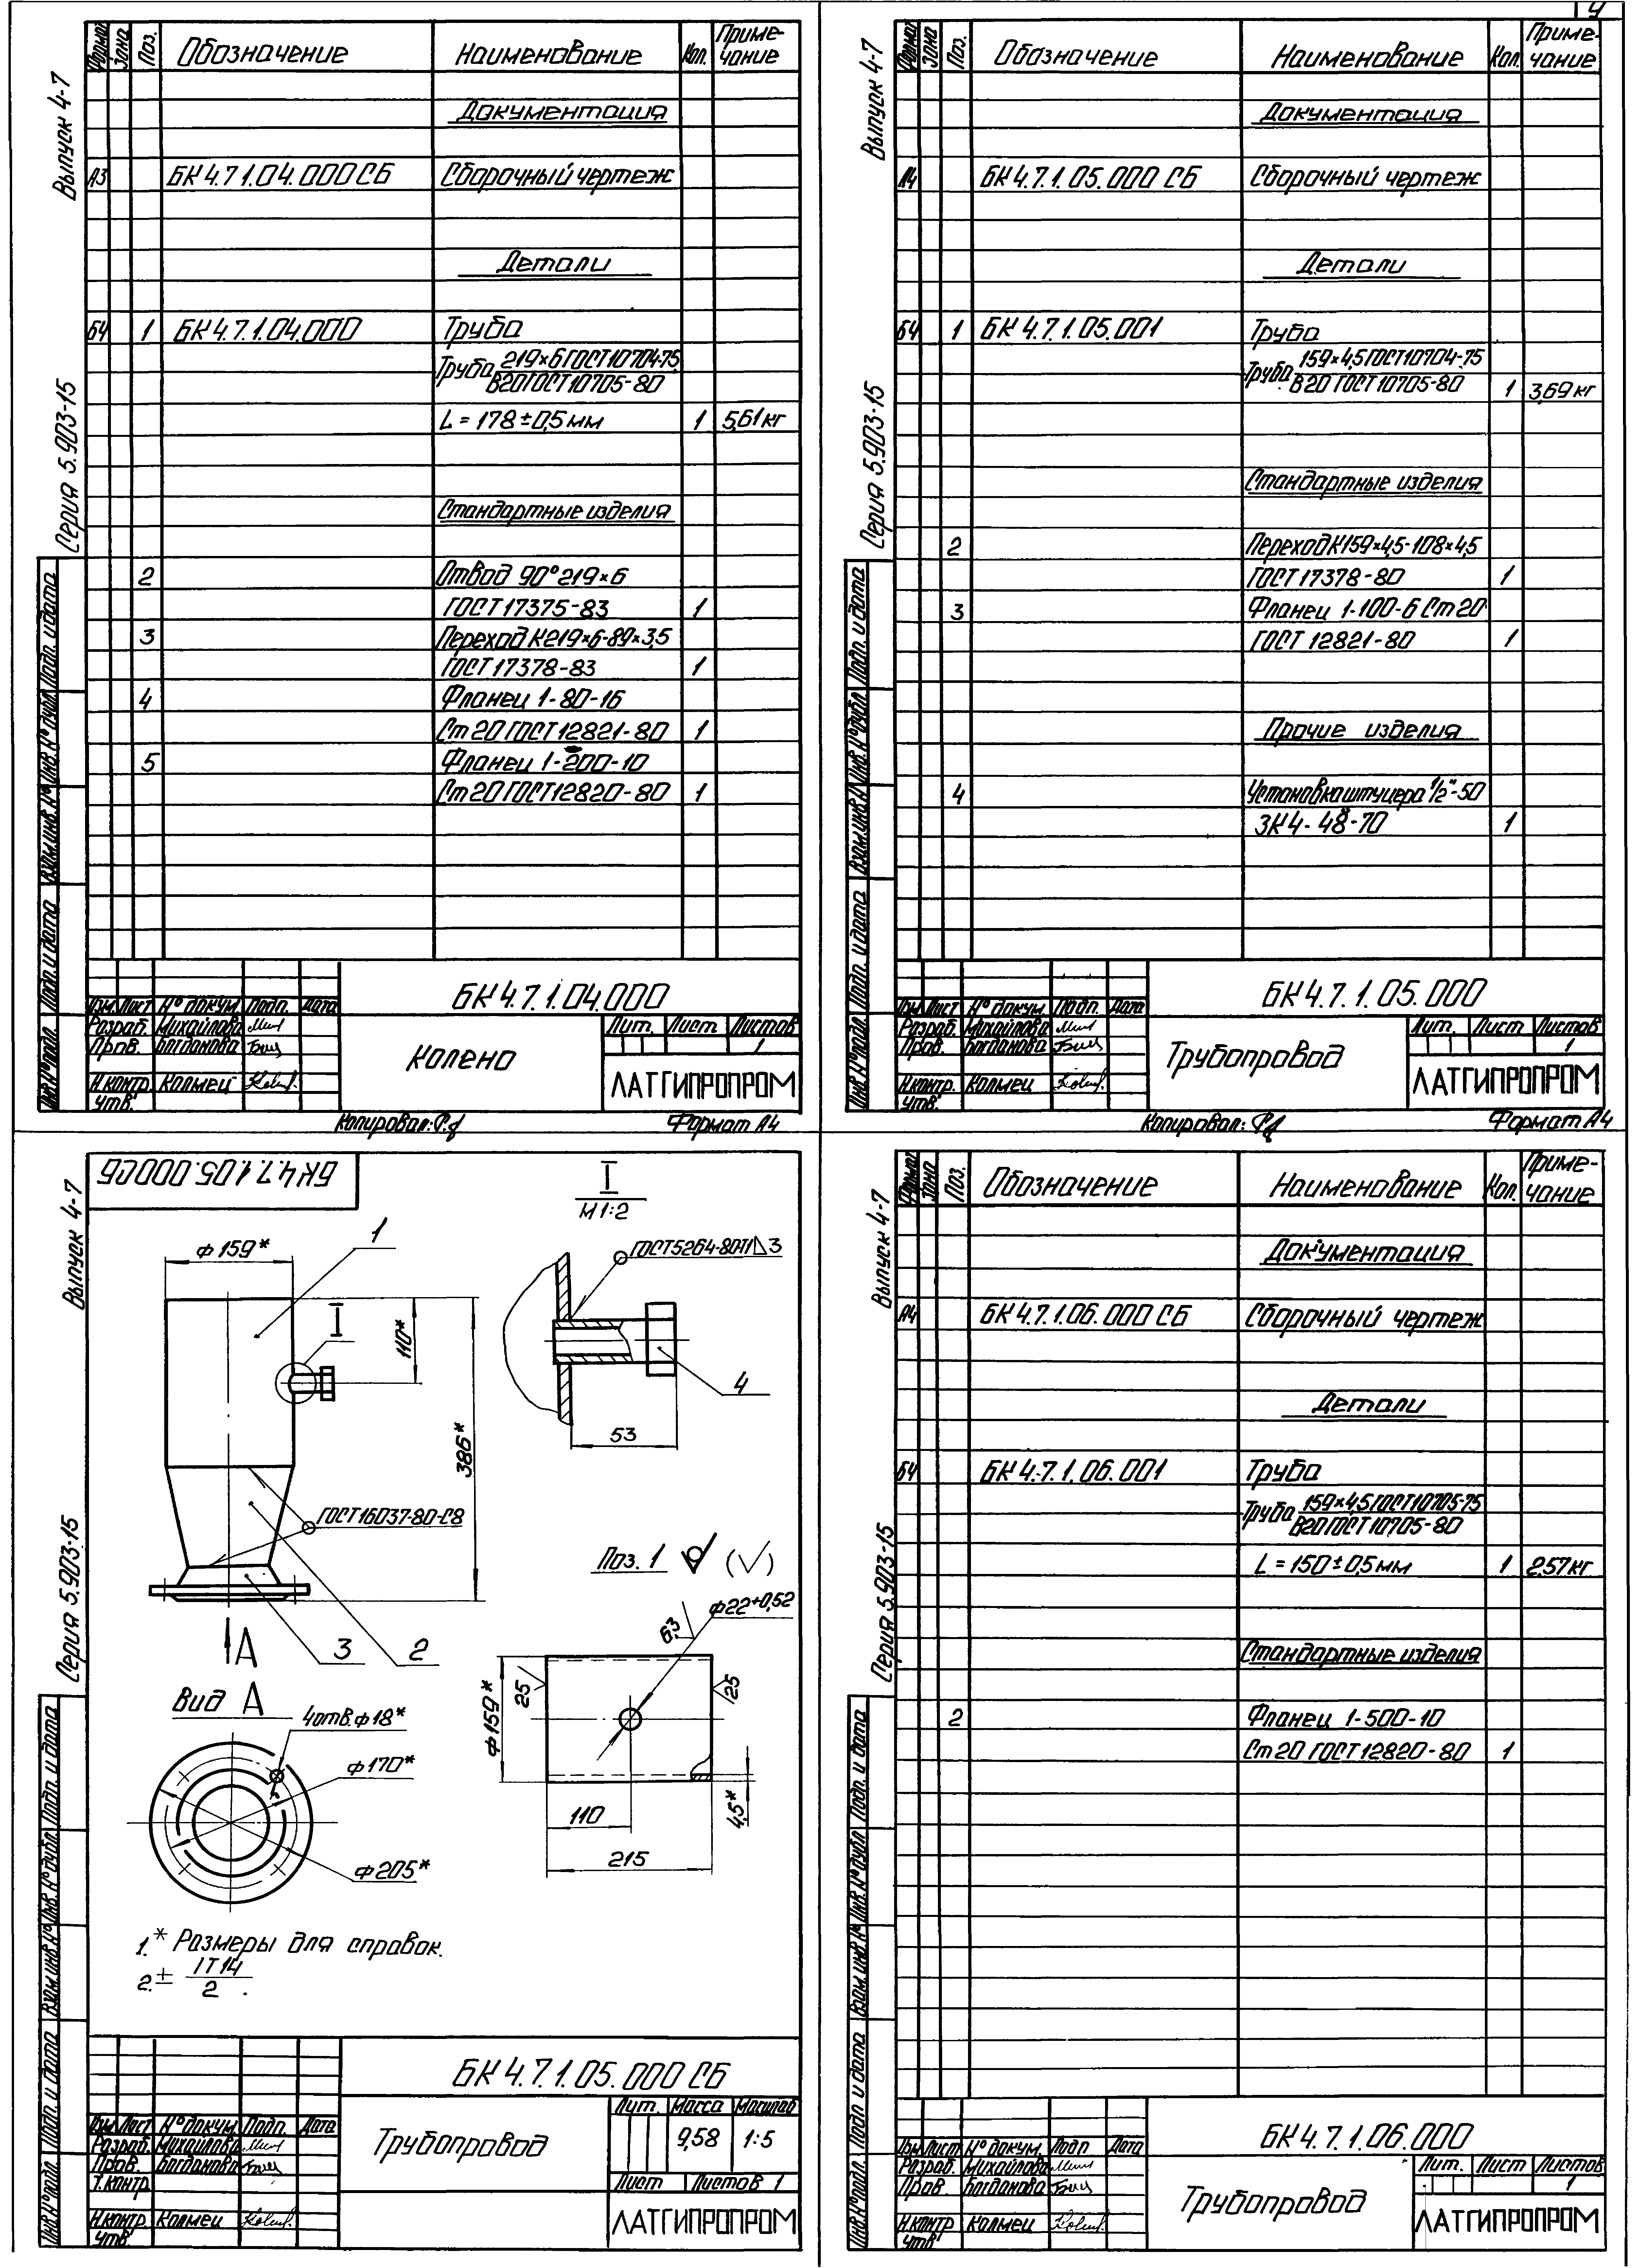 4
Выпуск 4-7
Серия 5.903-15
Формат Зона Поз. Обозначение Наименование Кол. Приме-
чание
Документация
А3 БК 4.7.1.04.000 СБ Сборочный чертеж
Детали
БЧ 1 БК 4.7.1.04.000 Труба
Труба 219×6 ГОСТ 10704-75
В20 ГОСТ 10705-80
L = 178 ± 0,5 мм 1 5,61 кг
Стандартные изделия
2 Отвод 90° 219×6
ГОСТ 17375-83 1
3 Переход К219×6-89×3,5
ГОСТ 17378-83 1
4 Фланец 1-80-16
Ст 20 ГОСТ 12821-80 1
5 Фланец 1-200-10
Ст 20 ГОСТ 12820-80 1
Инв. № подл. Подп. и дата Взам. инв. № Инв. № дубл. Подп. и дата
БК 4.7.1.04.000
Изм. Лист № докум. Подп. Дата
Разраб. Михайлова
Пров. Богданова
Н.контр. Колмец
Утв.
Колено
Лит. Лист Листов
1
ЛАТГИПРОПРОМ
Копировал:
Формат А4
Выпуск 4-7
Серия 5.903-15
Формат Зона Поз. Обозначение Наименование Кол. Приме-
чание
Документация
А4 БК 4.7.1.05.000 СБ Сборочный чертеж
Детали
БЧ 1 БК 4.7.1.05.001 Труба
Труба 159×4,5 ГОСТ 10704-75
В20 ГОСТ 10705-80
1 3,69 кг
Стандартные изделия
2 Переход К159×4,5-108×4,5
ГОСТ 17378-80 1
3 Фланец 1-100-6 Ст 20
ГОСТ 12821-80 1
Прочие изделия
4 Установка штуцера 1/2"-50
ЗК4-48-70 1
Инв. № подл. Подп. и дата Взам. инв. № Инв. № дубл. Подп. и дата
БК 4.7.1.05.000
Изм. Лист № докум. Подп. Дата
Разраб. Михайлова
Пров. Богданова
Н.контр. Колмец
Утв.
Трубопровод
Лит. Лист Листов
1
ЛАТГИПРОПРОМ
Копировал:
Формат А4
Выпуск 4-7
Серия 5.903-15
БК 4.7.1.05.000 СБ
I
М 1:2
ф 159*
1
I
110*
386*
ГОСТ 5264-80-Т1 △ 3
4
53
ГОСТ 16037-80-С8
3
2
А
Поз. 1 (√)
ф22+0,52
6,3
25
25
ф 159*
4,5*
110
215
Вид А
4 отв. ф 18*
ф 170*
ф 205*
1.* Размеры для справок.
2. ± IT14
2 .
Инв. № подл. Подп. и дата Взам. инв. № Инв. № дубл. Подп. и дата
БК 4.7.1.05.000 СБ
Изм. Лист № докум. Подп. Дата
Разраб. Михайлова
Пров. Богданова
Т.контр.
Н.контр. Колмец
Утв.
Трубопровод
Лит. Масса Масштаб
9,58 1:5
Лист Листов 1
ЛАТГИПРОПРОМ
Выпуск 4-7
Серия 5.903-15
Формат Зона Поз. Обозначение Наименование Кол. Приме-
чание
Документация
А4 БК 4.7.1.06.000 СБ Сборочный чертеж
Детали
БЧ БК 4.7.1.06.001 Труба
Труба 159×4,5 ГОСТ 10705-75
В20 ГОСТ 10705-80
L = 150 ± 0,5 мм 1 2,57 кг
Стандартные изделия
2 Фланец 1-500-10
Ст 20 ГОСТ 12820-80 1
Инв. № подл. Подп. и дата Взам. инв. № Инв. № дубл. Подп. и дата
БК 4.7.1.06.000
Изм. Лист № докум. Подп. Дата
Разраб. Михайлова
Пров. Богданова
Н.контр. Колмец
Утв.
Трубопровод
Лит. Лист Листов
1
ЛАТГИПРОПРОМ